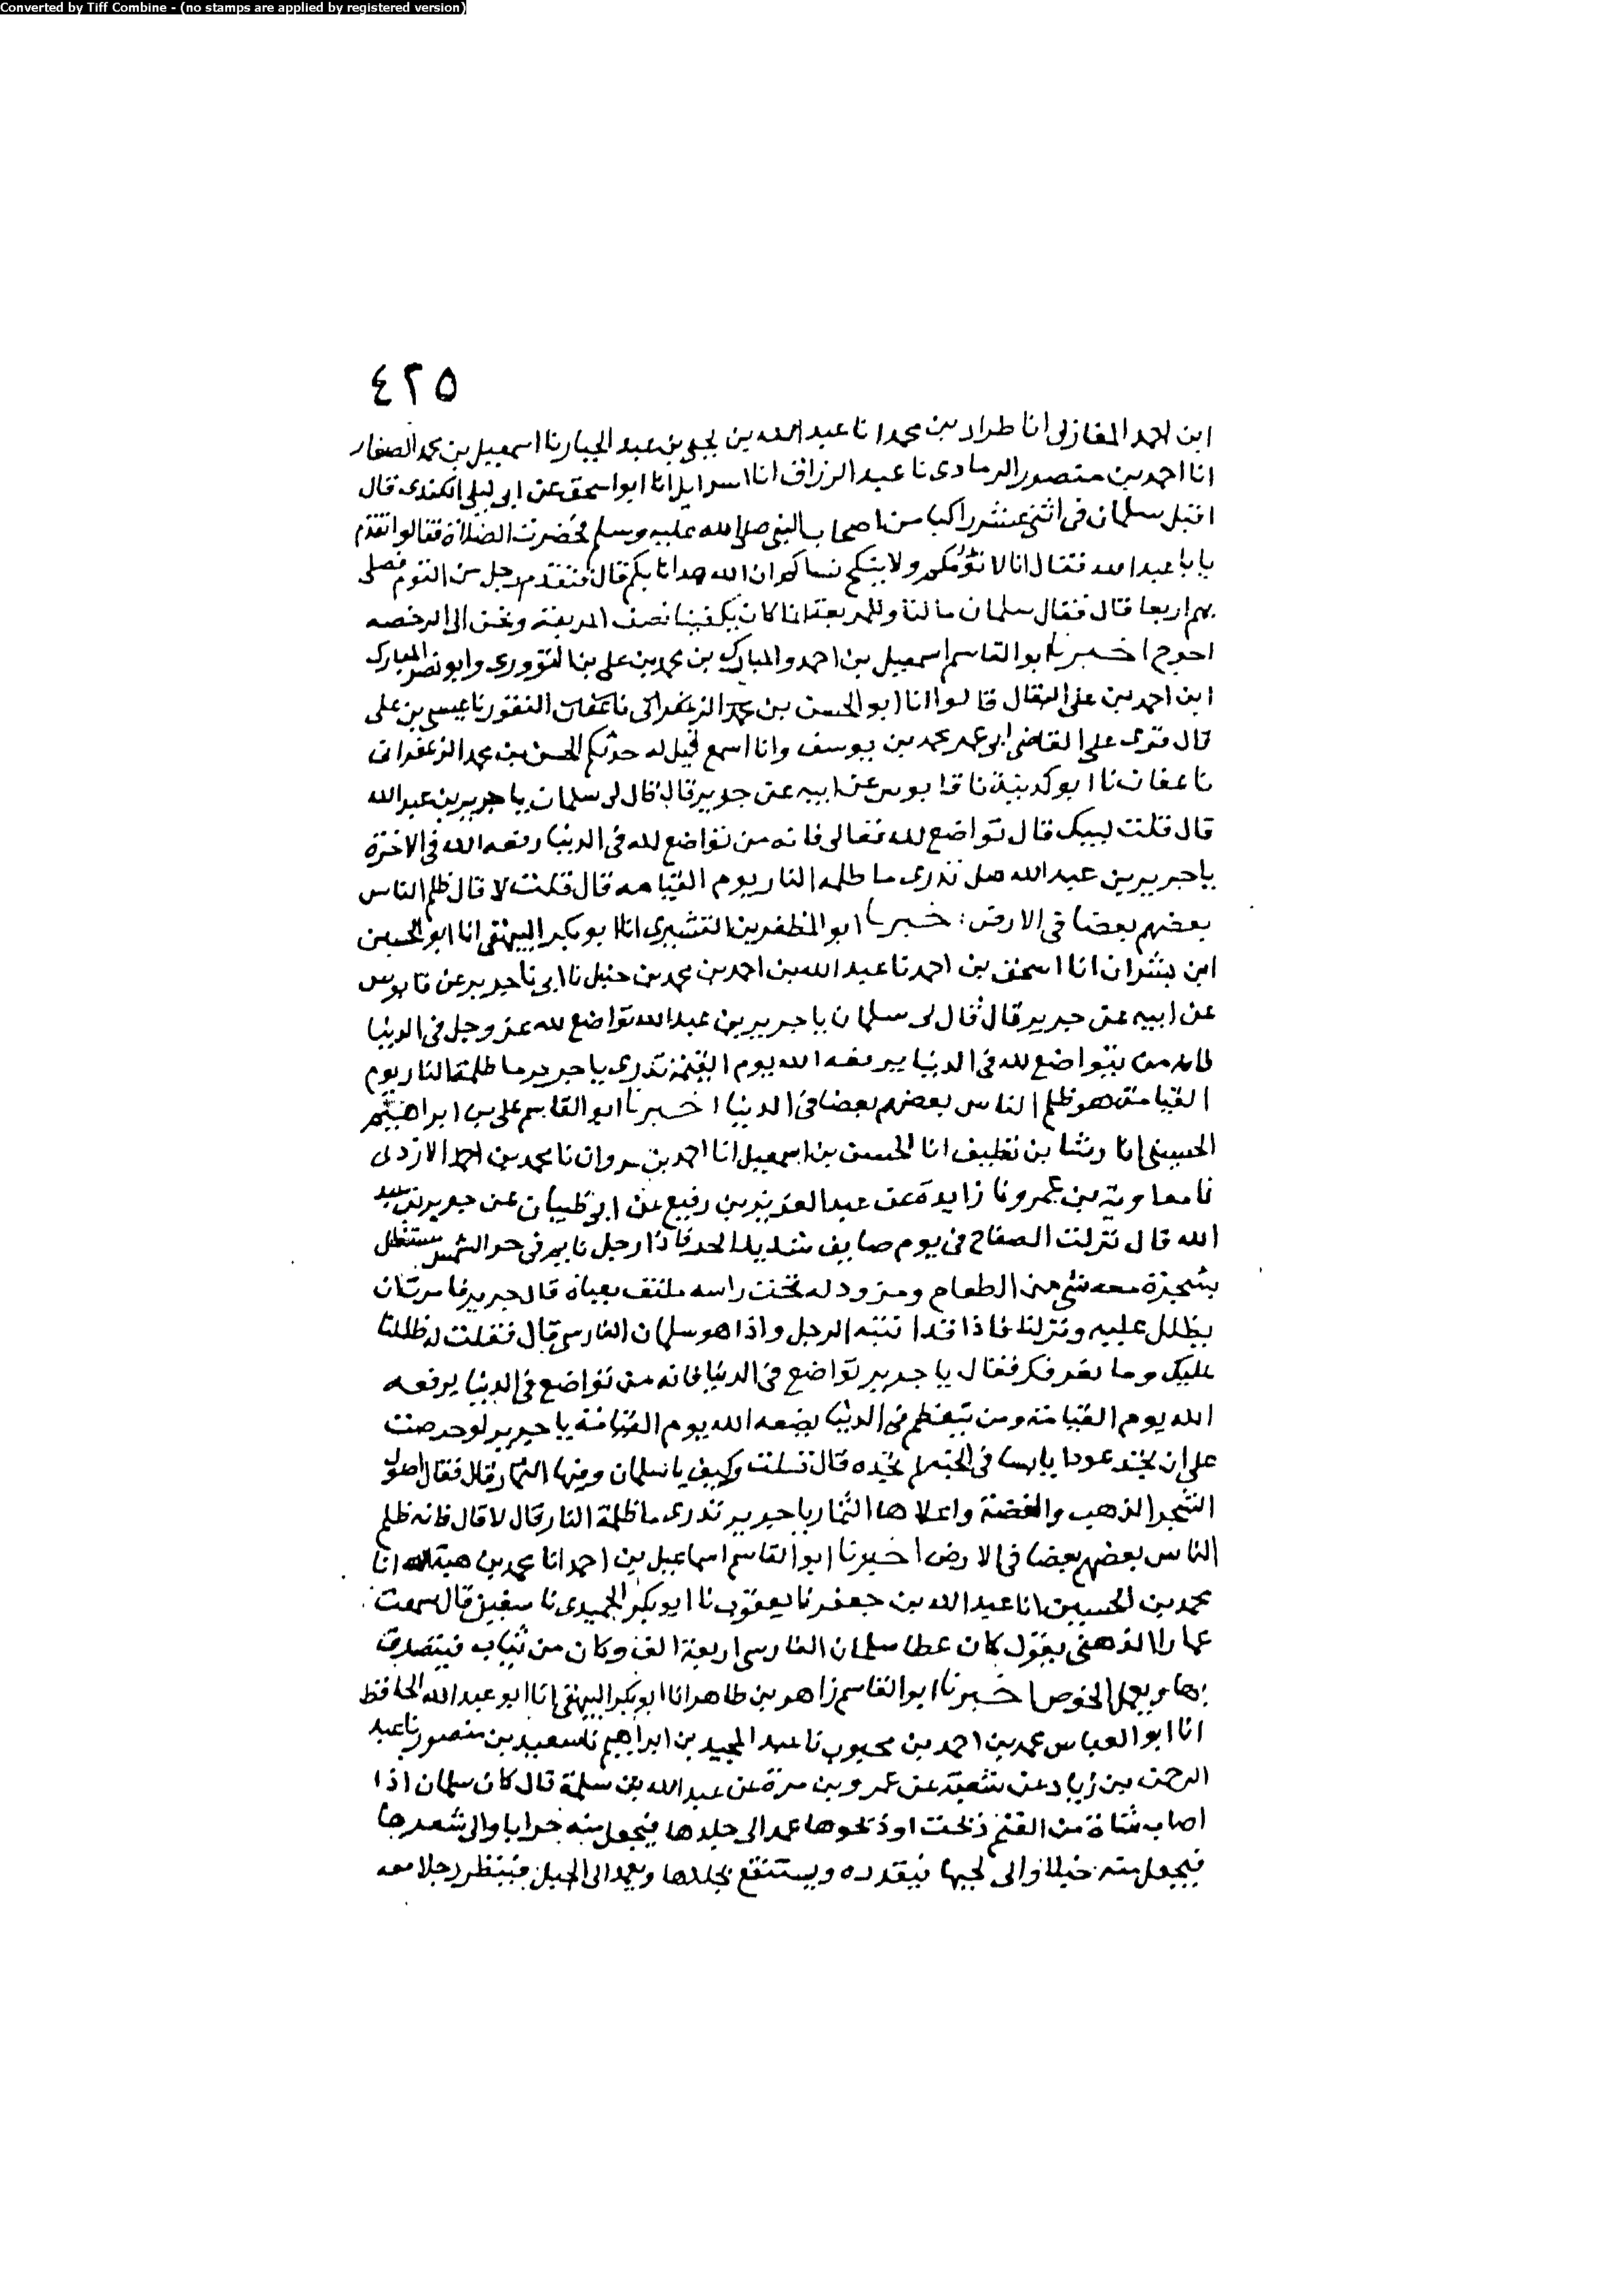 Converted by Tiff Combine - (no stamps are applied by registered version)
٤٢٥
ابن احمد المغازلى انا طراد بن محمد انا عبد الله بن يحيى بن عبد الجبار نا اسمعيل بن محمد الصفار
انا احمد بن منصور الرمادى نا عبد الرزاق انا اسرايل انا ابو اسحق عن ابى ليلى الكندى قال
اقبل سلمان فى اثنى عشر راكبا من اصحاب النبى صلى الله عليه وسلم فحضرت الصلاة فقالوا تقدم
يا با عبد الله فقال انا لا نؤمكم ولا ننكح نساكم ان الله هدانا بكم قال فتقدم رجل من القوم فصلى
بهم اربعا قال فقال سلمان ما لنا وللمربعة انما كان يكفينا نصف المربعة ونحن الى الرخصه
احوج اخبرنا ابو القاسم اسمعيل بن احمد والمبارك بن محمد بن على بن وابو نصر المبارك
ابن احمد بن على البقال قالوا انا ابو الحسين بن النقور نا عيسى بن على
قال قرى على القاضى ابى عمر محمد بن يوسف وانا اسمع قيل له حدثكم الحسن بن محمد الزعفرانى
نا عفان نا ابو كدينة نا قابوس عن ابيه عن جرير قال قال لى سلمان يا جرير بن عبد الله
قال قلت لبيك قال تواضع لله تعالى فانه من تواضع لله فى الدنيا رفعه الله فى الاخرة
يا جرير بن عبد الله هل تدرى ما ظلمه النار يوم القيامه قال قلت لا قال ظلم الناس
بعضهم بعضا فى الارض اخبرنا ابو المظفر بن القشيرى انا ابو بكر البيهقى انا ابو الحسين
ابن بشران انا اسحق بن احمد نا عبد الله بن احمد بن محمد بن حنبل نا ابى نا جرير عن قابوس
عن ابيه عن جرير قال قال لى سلمان يا جرير بن عبد الله تواضع لله عز وجل فى الدنيا
فانه من يتواضع لله فى الدنيا يرفعه الله يوم القيمة تدرى يا جرير ما ظلمة النار يوم
القيامة هو ظلم الناس بعضهم بعضا فى الدنيا اخبرنا ابو القاسم على بن ابراهيم
الحسينى انا رشا بن نظيف انا الحسن بن اسمعيل انا احمد بن مروان نا محمد بن احمد الازدى
نا معاوية بن عمرو نا زايدة عن عبد العزيز بن رفيع عن ابى ظبيان عن جرير بن عبد
الله قال نزلت الصفاح فى يوم صايف شديد الحر فاذا رجل نايم فى حر الشمس مستظل
بشجرة معه شى من الطعام ومزود له تحت راسه ملتف بعباة قال جرير فامرت ان
يظلل عليه ونزلنا فاذا قد انتبه الرجل واذا هو سلمان الفارسى قال فقلت له ظللنا
عليك وما نعرفك فقال يا جرير تواضع فى الدنيا فانه من تواضع فى الدنيا يرفعه
الله يوم القيامة ومن يتعظم فى الدنيا يضعه الله يوم القيامة يا جرير لو حرصت
على ان تجد عودا يابسا فى الجنة لم تجده قال قلت وكيف يا سلمان وفيها الثمار قال فقال اصول
الشجر الذهب والفضة واعلاها الثمار يا جرير تدرى ما ظلمة النار قال لا قال فانه ظلم
الناس بعضهم بعضا فى الارض اخبرنا ابو القاسم اسماعيل بن احمد انا محمد بن هبة الله انا
محمد بن الحسين انا عبد الله بن جعفر نا يعقوب نا ابو بكر الحميدى نا سفين قال سمعت
عمارا الذهنى يقول كان عطا سلمان الفارسى اربعة الف وكان من ثياب فيتصدق
بها ويعمل الخوص اخبرنا ابو القاسم زاهر بن طاهر انا ابو بكر البيهقى انا ابو عبد الله الحافظ
انا ابو العباس محمد بن احمد بن محبوب نا عبد المجيد بن ابراهيم نا سعيد بن منصور نا عبد
الرحمن بن زياد عن شعبة عن عمرو بن مرة عن عبد الله بن سلمة قال كان سلمان اذا
اصاب شاة من الغنم ذبحت او ذبحوها عمد الى جلدها فيجعل منه جرابا والى شعرها
فيجعل منه حبلا والى لحمها فيقدده ويستنفع بجلدها ويعمد الى الحبل فينظر رجلا معه